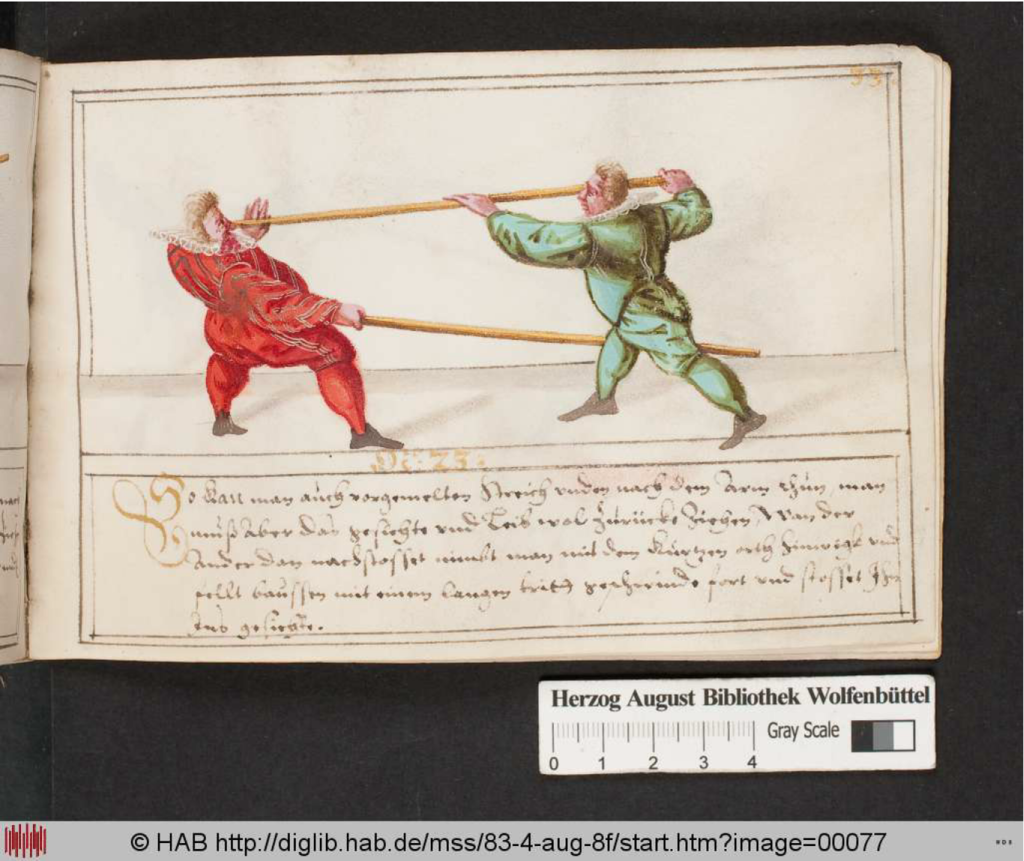 33
No: 23:
So kan man auch vorgemelten streich unden nach dem Arm thun, man
muß aber das gesichte und Leib wol zurücke ziehen, Wan der
Ander dan nachstosset nimbt man mit dem kurtzen orth hinwegk und
fellt baussen mit einem langen tritt geschwinde fort und stosset Ihn
Ins gesichte.
Herzog August Bibliothek Wolfenbüttel
Gray Scale
0 1 2 3 4
© HAB http://diglib.hab.de/mss/83-4-aug-8f/start.htm?image=00077